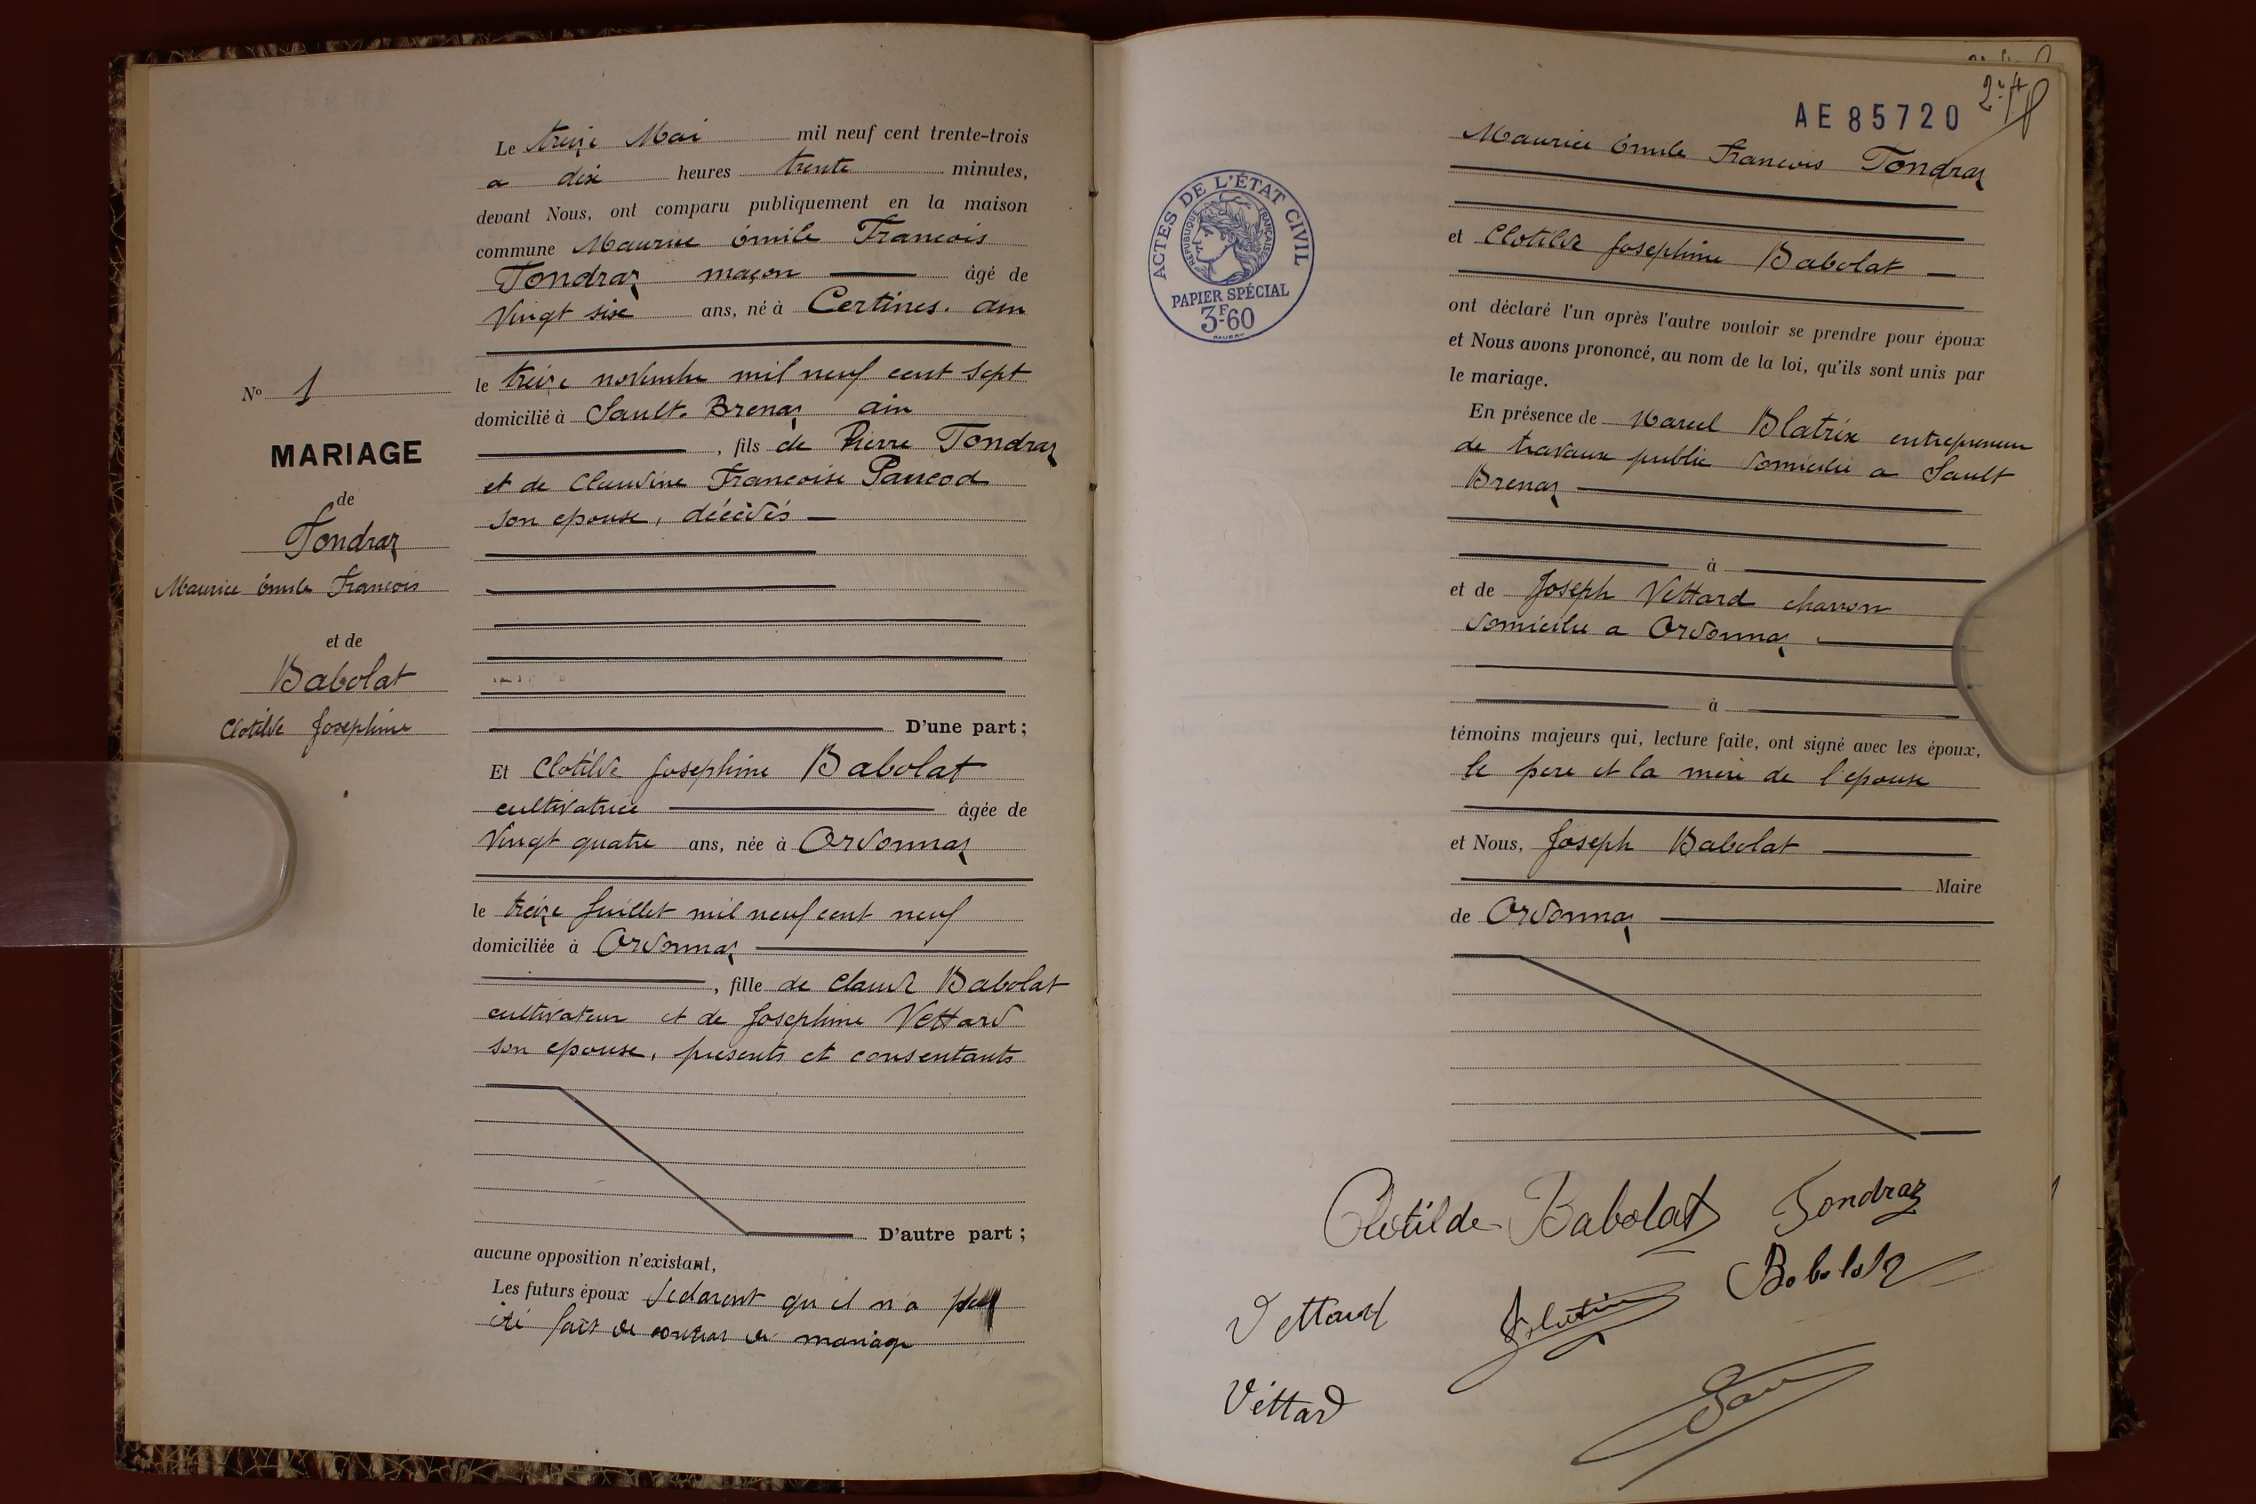 Le treize Mai mil neuf cent trente-trois
a dix heures trente minutes,
devant Nous, ont comparu publiquement en la maison
commune Maurice émile Francois
Tondraz maçon âgé de
Vingt six ans, né à Certines. ain
le treize novembre mil neuf cent sept
domicilié à Sault-Brenaz ain
, fils de Pierre Tondraz
et de Claudine Francoise Pancod
son epouse, décèdés
D'une part ;
Et Clotilde Josephine Babolat
cultivatrice âgée de
Vingt quatre ans, née à Ordonnaz
le treize Juillet mil neuf cent neuf
domiciliée à Ordonnaz
, fille de Claude Babolat
cultivateur et de Josephine Vettard
son epouse, presents et consentants
D'autre part ;
aucune opposition n'existant,
Les futurs époux declarent qu il n'a pas
été fait de contrat de mariage
No 1
MARIAGE
de
Tondraz
Maurice émile Francois
et de
Babolat
Clotilde Josephine
AE 85720
ACTES DE L'ÉTAT CIVIL
RÉPUBLIQUE FRANÇAISE
PAPIER SPÉCIAL
3F-60
Maurice émile Francois Tondraz
et Clotilde Josephine Babolat
ont déclaré l'un après l'autre vouloir se prendre pour époux
et Nous avons prononcé, au nom de la loi, qu'ils sont unis par
le mariage.
En présence de Marcel Blatrix entrepreneur
de travaux public domicilié a Sault
Brenaz
à
et de Joseph Vettard charron
domicilié a Ordonnaz
à
témoins majeurs qui, lecture faite, ont signé avec les époux,
le pere et la mère de l'epouse
et Nous, Joseph Babolat
Maire
de Ordonnaz
Clotilde Babolat Tondraz
Babolat
Vettard Blatrix
Vettard